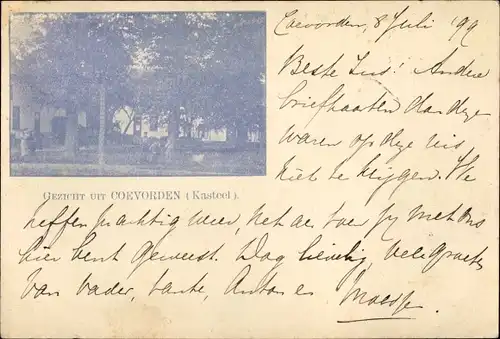 Coevorden, 8 Juli '99
Beste Zus! Andere
briefkaarten dan deze
waren op deze reis
niet te krijgen. We
treffen prachtig weer, net als toen jij met ons
hier bent geweest. Dag lieveling, vele groeten
van vader, tante, Anton en Moesje.
GEZICHT UIT COEVORDEN (Kasteel).